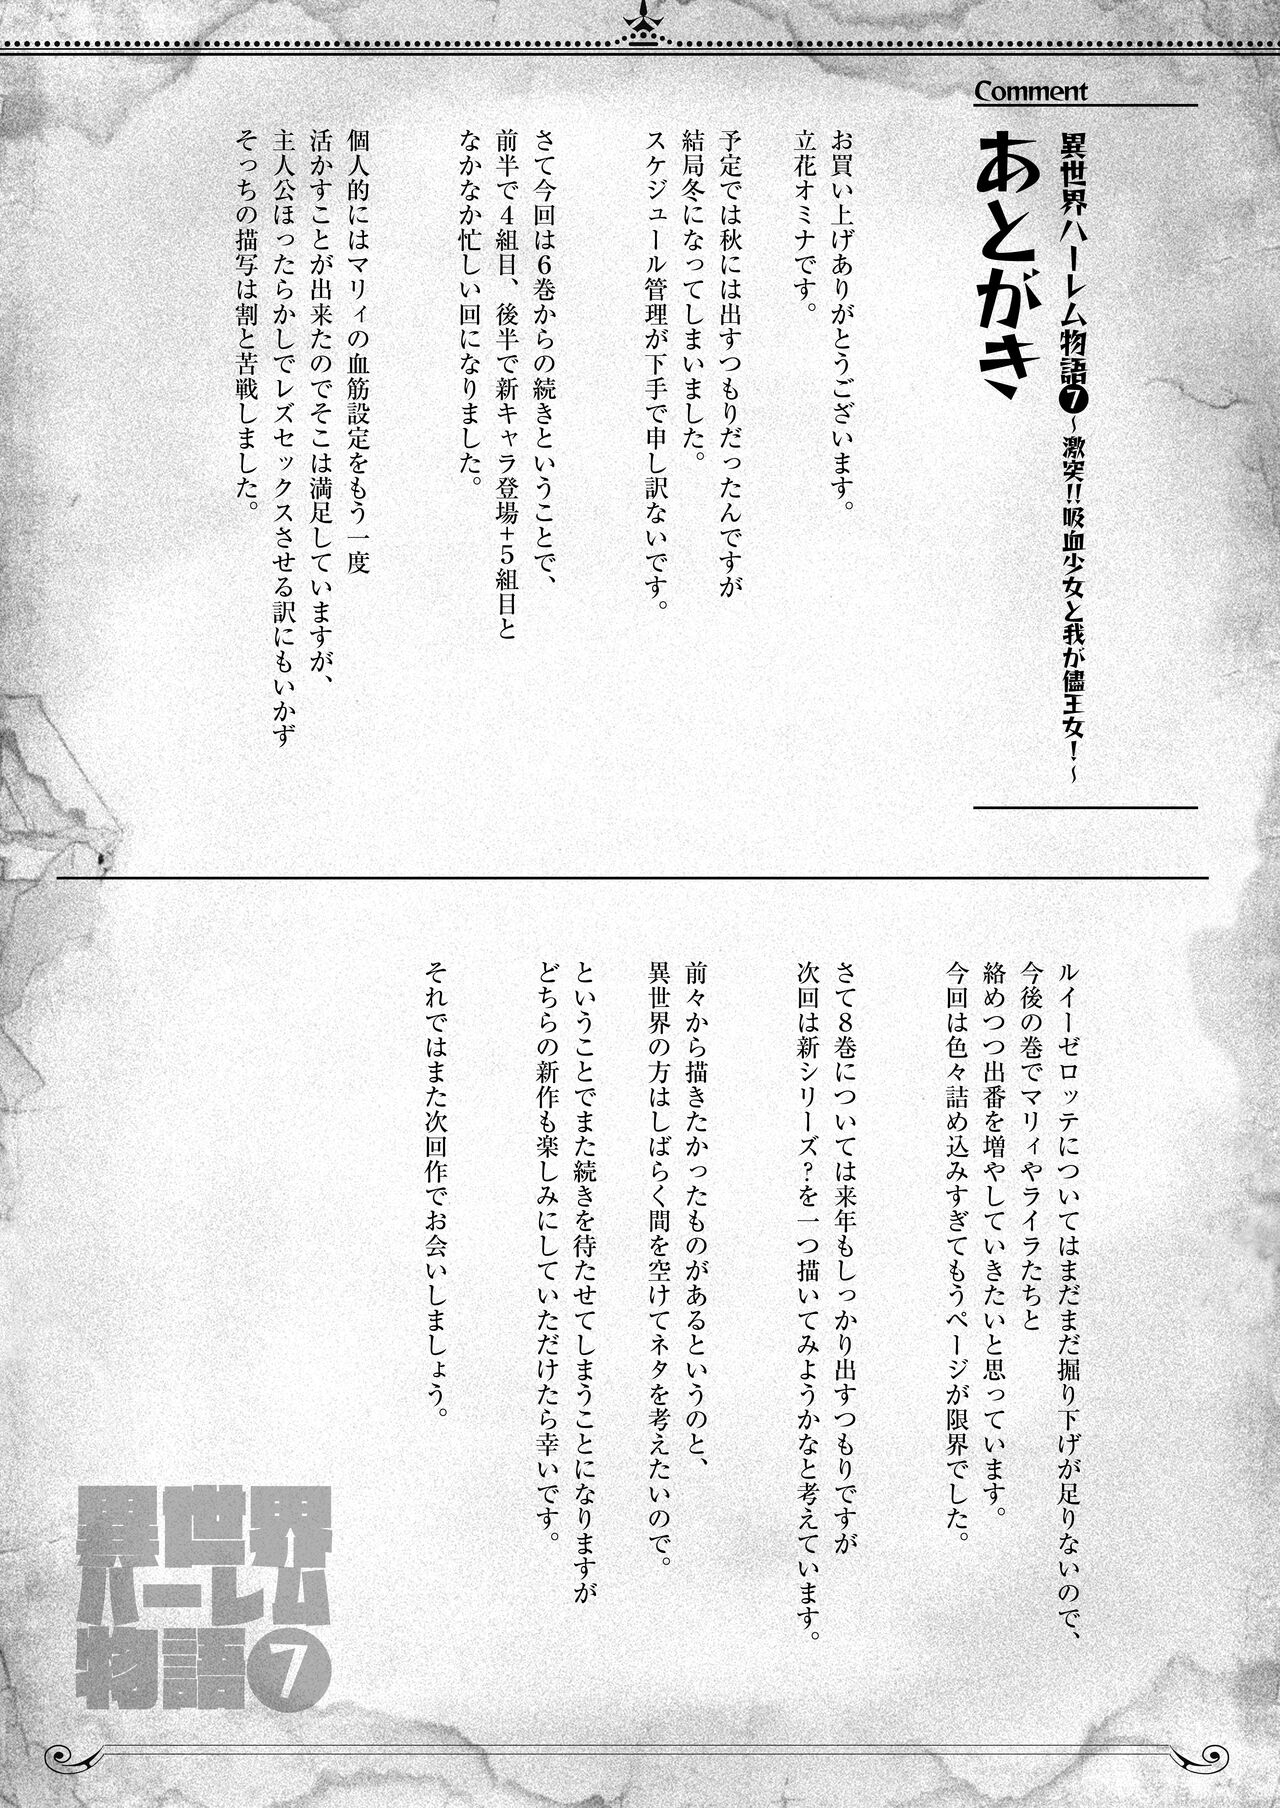 Comment
異世界ハーレム物語❼～激突!!吸血少女と我が儘王女!～
あとがき
お買い上げありがとうございます。
立花オミナです。
予定では秋には出すつもりだったんですが
結局冬になってしまいました。
スケジュール管理が下手で申し訳ないです。
さて今回は6巻からの続きということで、
前半で4組目、後半で新キャラ登場+5組目と
なかなか忙しい回になりました。
個人的にはマリィの血筋設定をもう一度
活かすことが出来たのでそこは満足していますが、
主人公ほったらかしでレズセックスさせる訳にもいかず
そっちの描写は割と苦戦しました。
ルイーゼロッテについてはまだまだ掘り下げが足りないので、
今後の巻でマリィやライラたちと
絡めつつ出番を増やしていきたいと思っています。
今回は色々詰め込みすぎてもうページが限界でした。
さて8巻については来年もしっかり出すつもりですが
次回は新シリーズ?を一つ描いてみようかなと考えています。
前々から描きたかったものがあるというのと、
異世界の方はしばらく間を空けてネタを考えたいので。
ということでまた続きを待たせてしまうことになりますが
どちらの新作も楽しみにしていただけたら幸いです。
それではまた次回作でお会いしましょう。
異世界
ハーレム
物語❼